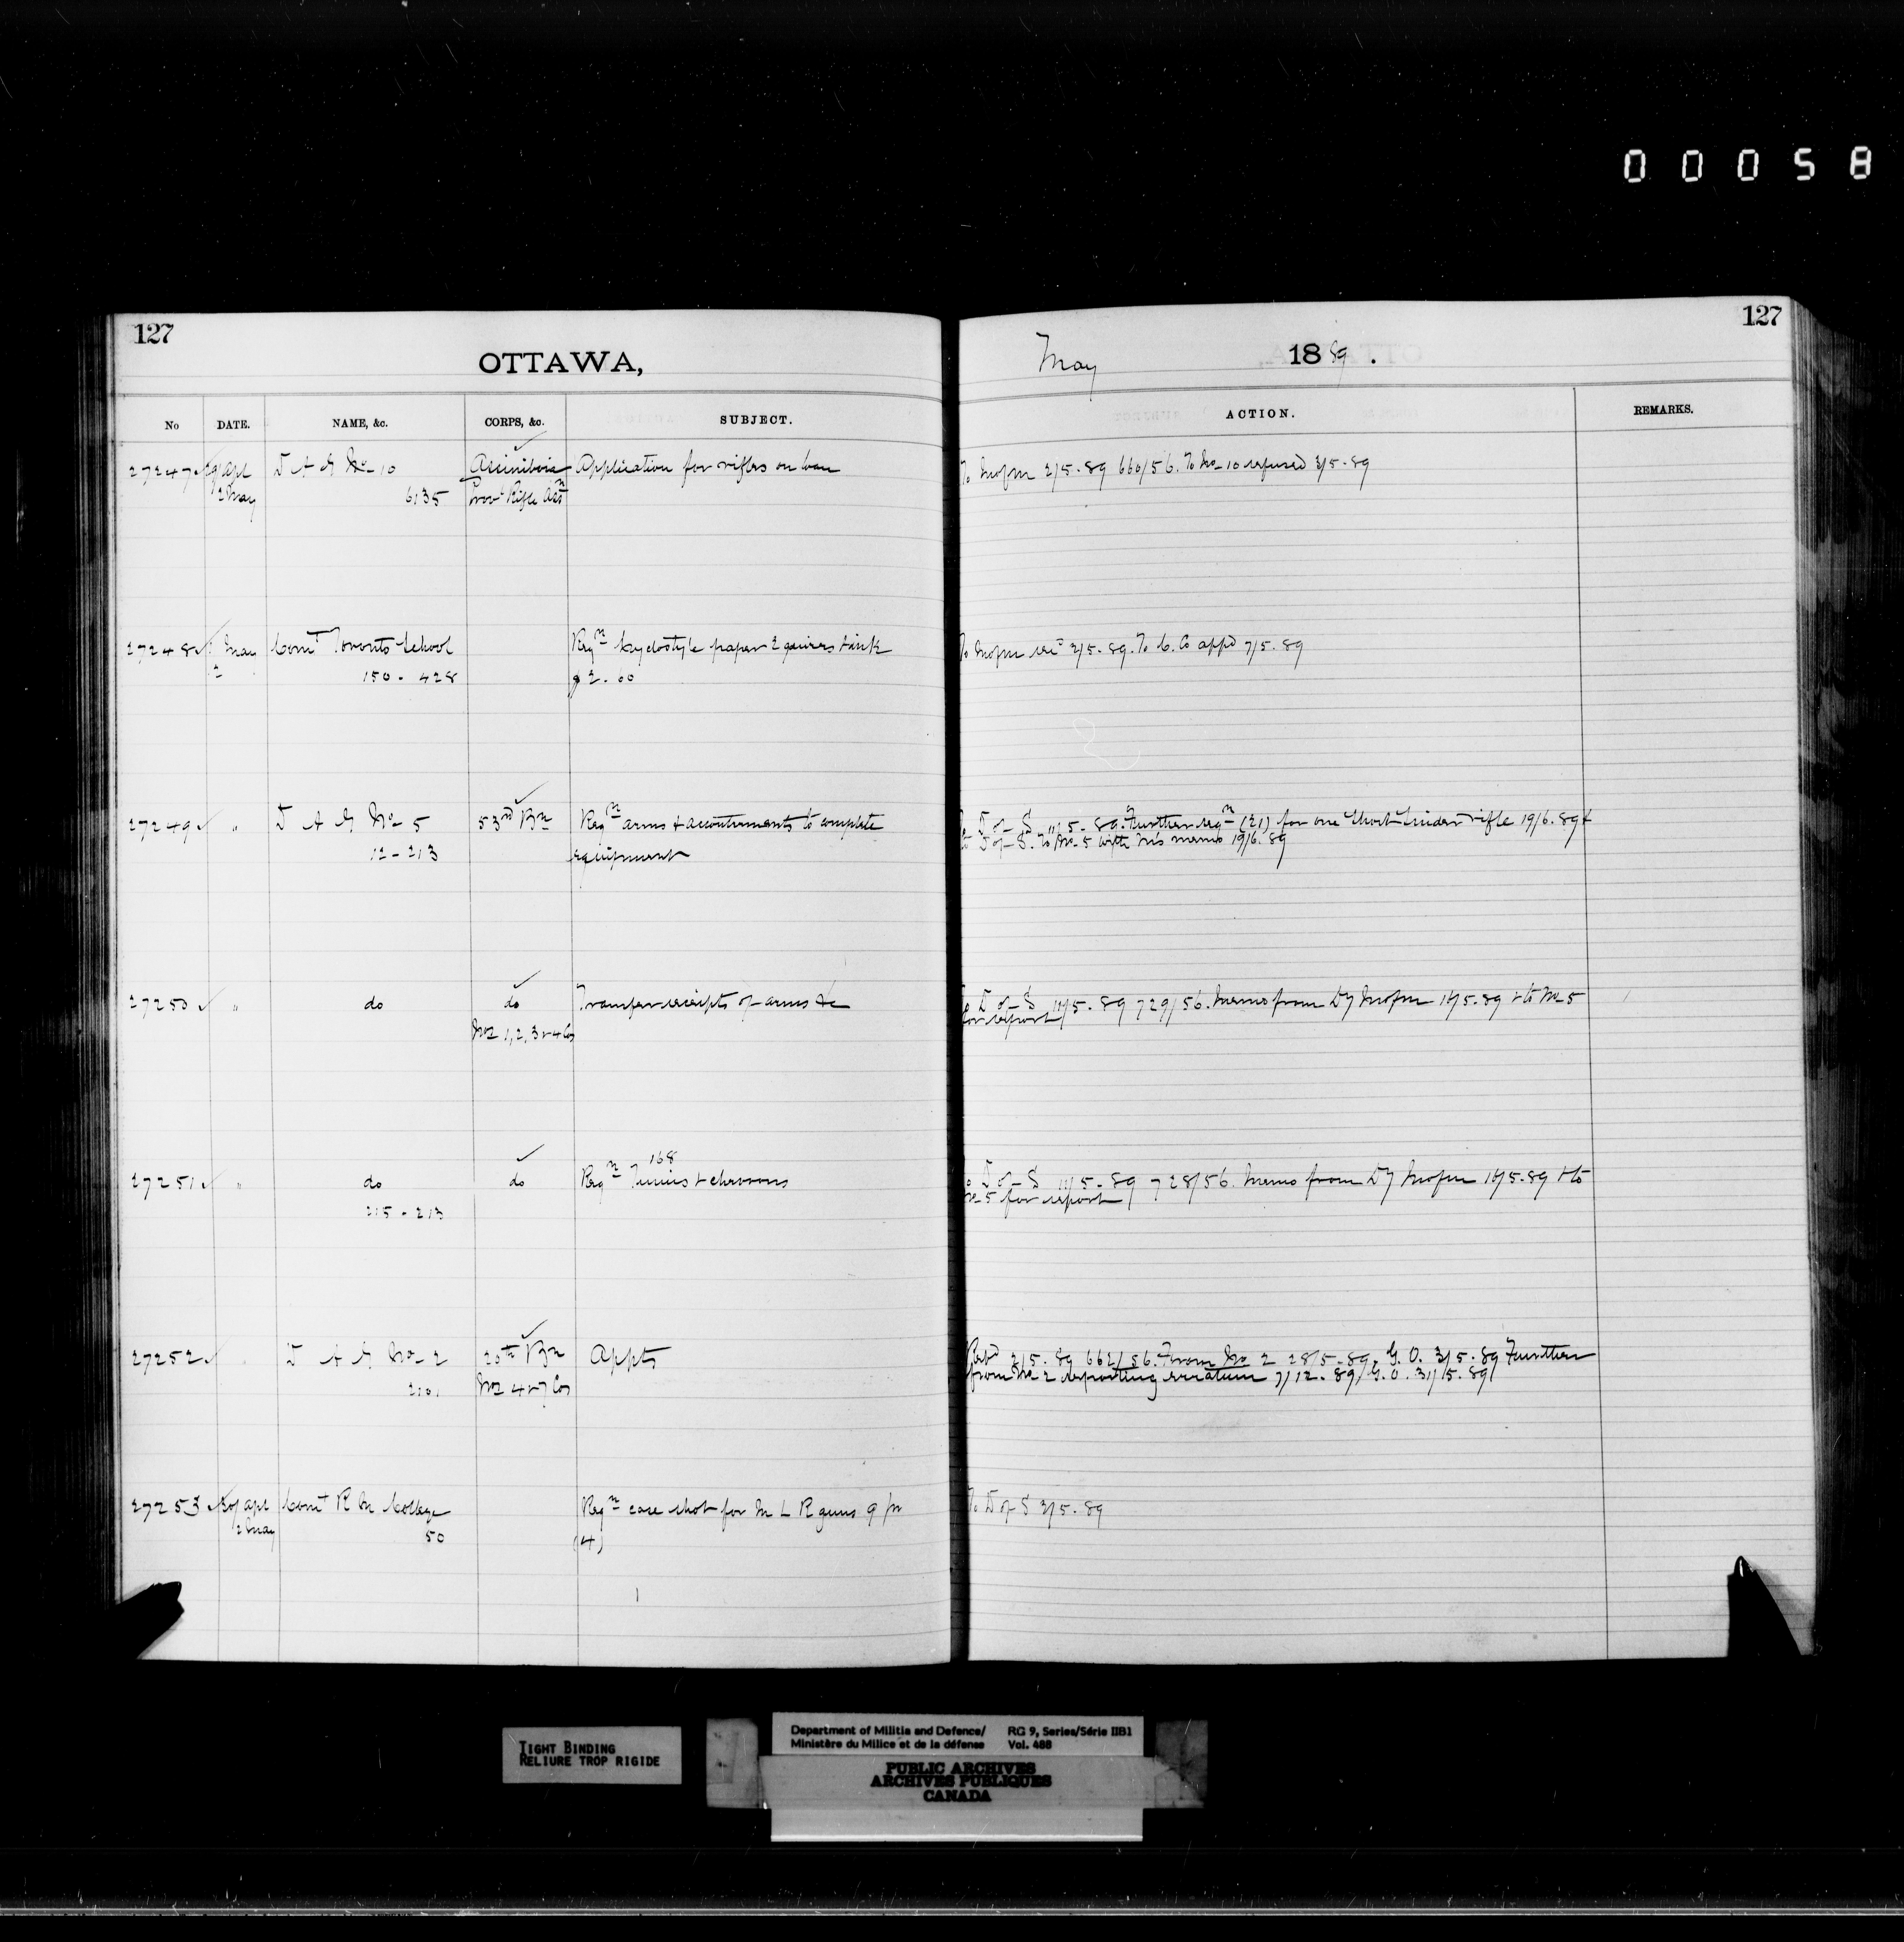 00058
127
OTTAWA,
May 1889.
127
No DATE. NAME, &c. CORPS, &c. SUBJECT. ACTION. REMARKS.
27247 29 Apl D A G No 10 Assiniboia Application for rifles on loan To 2/5.89 660/56. To No 10 refused 3/5.89
2 May 6135 Provl Rifle Assn
27248 1 May Comt Toronto School Reqn Cyclostyle paper 2 quires & ink To 2/5.89. To C. Co appd 7/5.89
2 150 - 428 $2.60
27249 " D A G No 5 53rd Bn Reqn arms & accoutrements to complete To D of S 11/5.89. Further reqn (21) for one short Snider rifle 19/6.89 &
12 - 213 equipment to D of S. To No 5 with his memo 19/6.89
27250 " do do Transfer receipts of arms &c To D of S 11/5.89 729/56. Memo from Dy 15/5.89 & to No 5
Nos 1, 2, 3 & 4 Cos for report
27251 " do do Reqn 168 Tunics & chevrons To D of S 11/5.89 728/56. Memo from Dy 15/5.89 & to
215 - 213 No 5 for report
27252 " D A G No 2 20th Bn Appts 2/5.89 662/56. From No 2 28/5.89, G. O. 3/5.89 Further
2101 Nos 4 & 7 Cos from No 2 reporting erratum 7/12.89, G.O. 31/5.89
27253 30 Apl Comt R M College Reqn case shot for M L R guns 9 pr To D of S 3/5.89
2 May 50 (4)
TIGHT BINDING
RELIURE TROP RIGIDE
Department of Militia and Defence/ RG 9, Series/Série IIB1
Ministère du Milice et de la défense Vol. 488
PUBLIC ARCHIVES
ARCHIVES PUBLIQUES
CANADA